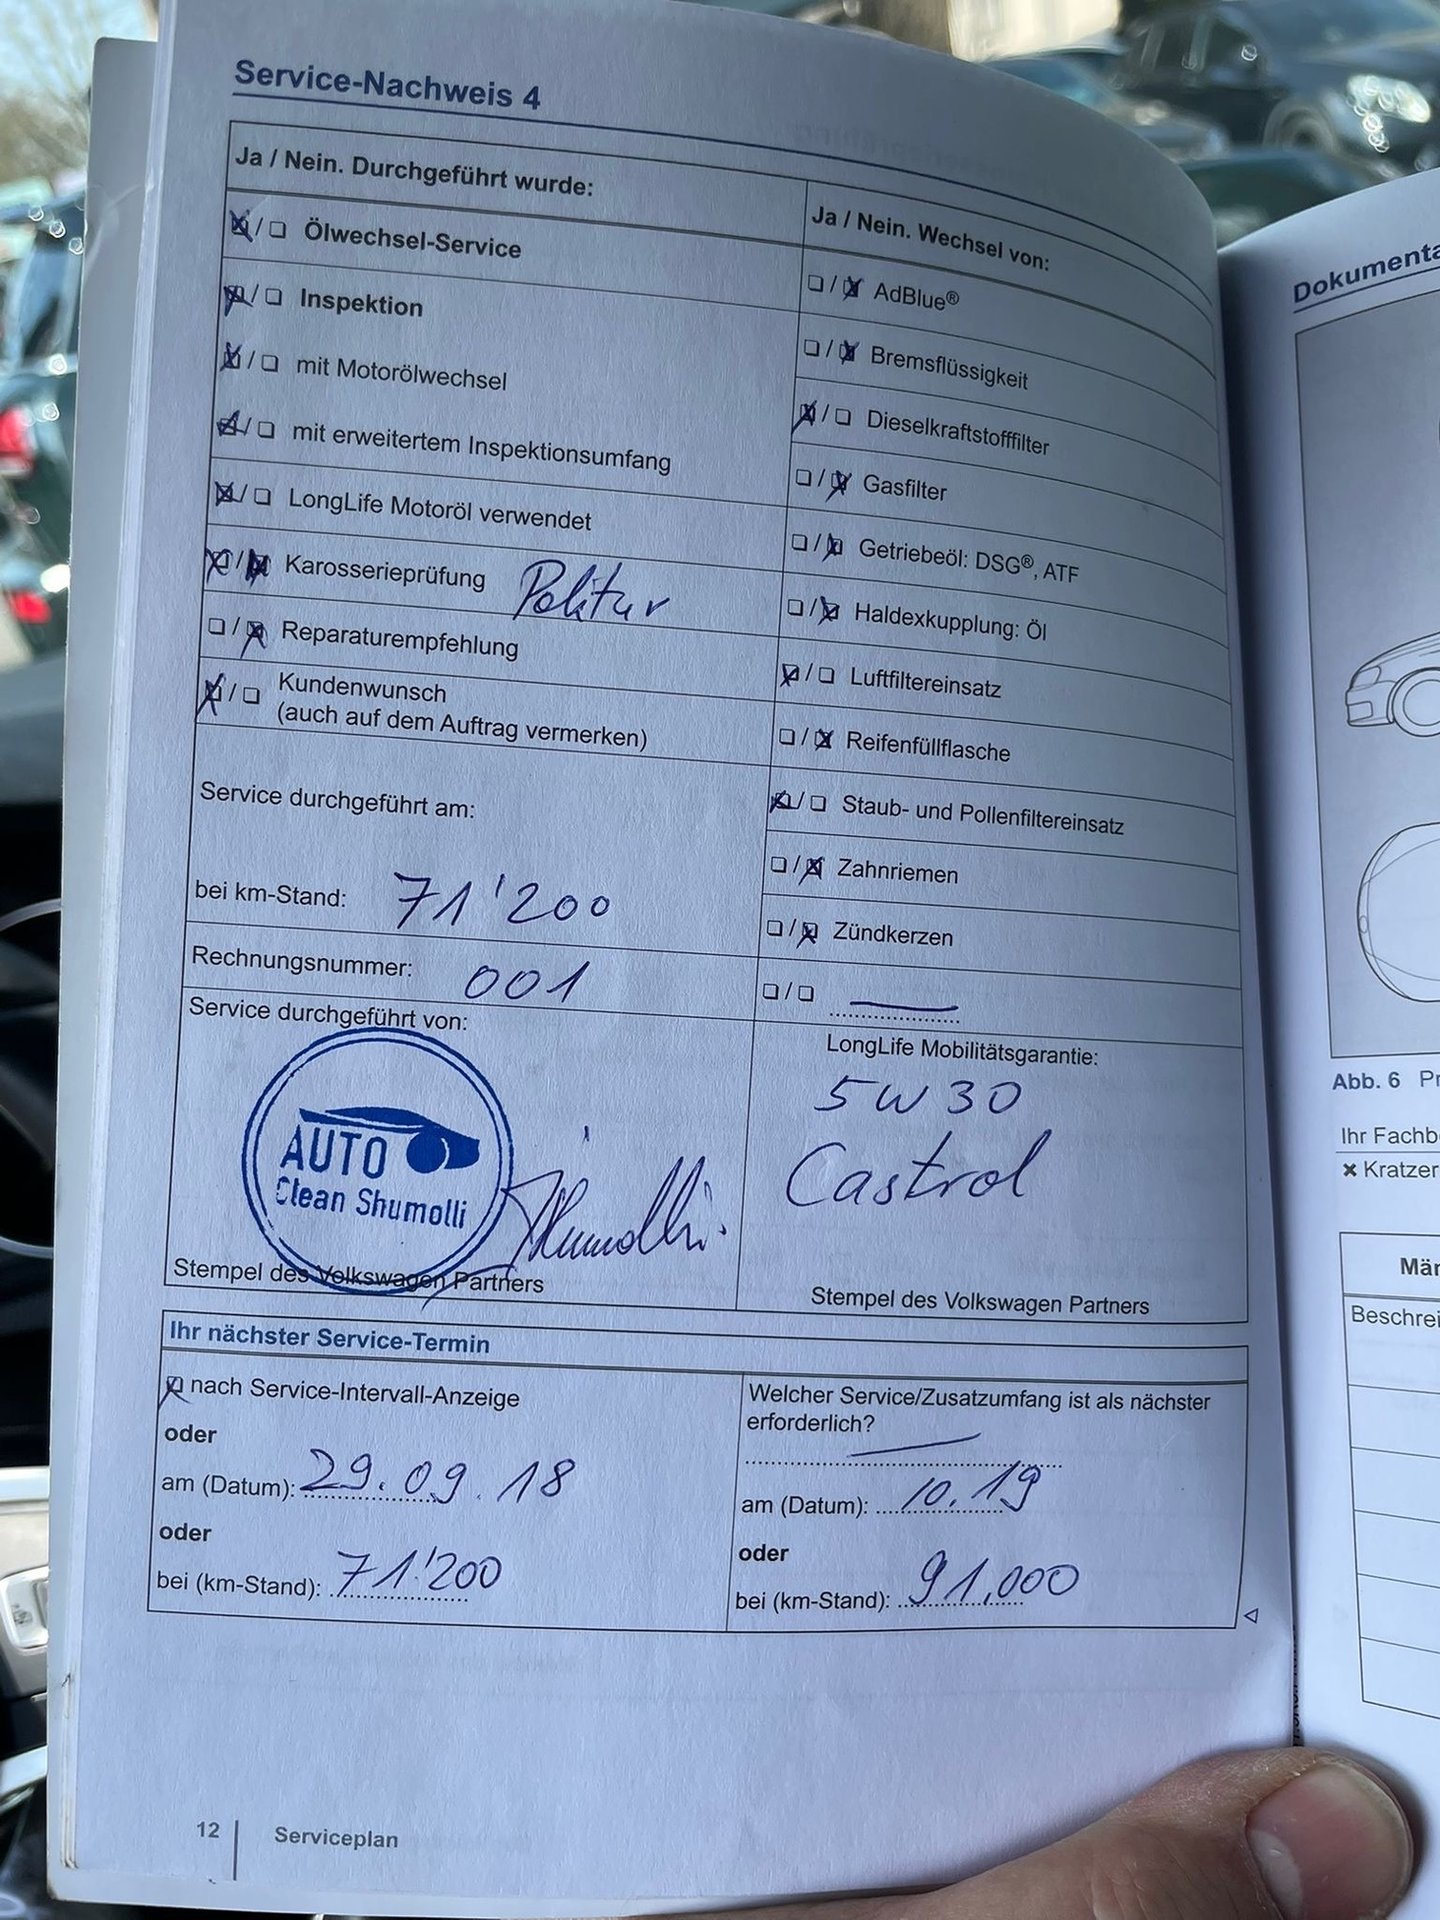 Service-Nachweis 4
Ja / Nein. Durchgeführt wurde:
☒ / ☐ Ölwechsel-Service
☒ / ☐ Inspektion
☒ / ☐ mit Motorölwechsel
☒ / ☐ mit erweitertem Inspektionsumfang
☒ / ☐ LongLife Motoröl verwendet
☒ / ☒ Karosserieprüfung Politur
☐ / ☒ Reparaturempfehlung
☒ / ☐ Kundenwunsch
(auch auf dem Auftrag vermerken)
Service durchgeführt am:
bei km-Stand: 71'200
Rechnungsnummer: 001
Service durchgeführt von:
AUTO
Clean Shumolli
Shumolli
Stempel des Volkswagen Partners
Ja / Nein. Wechsel von:
☐ / ☒ AdBlue®
☐ / ☒ Bremsflüssigkeit
☒ / ☐ Dieselkraftstofffilter
☐ / ☒ Gasfilter
☐ / ☒ Getriebeöl: DSG®, ATF
☐ / ☒ Haldexkupplung: Öl
☒ / ☐ Luftfiltereinsatz
☐ / ☒ Reifenfüllflasche
☒ / ☐ Staub- und Pollenfiltereinsatz
☐ / ☒ Zahnriemen
☐ / ☒ Zündkerzen
☐ / ☐
LongLife Mobilitätsgarantie:
5W30
Castrol
Stempel des Volkswagen Partners
Ihr nächster Service-Termin
☒ nach Service-Intervall-Anzeige
oder
am (Datum): 29.09.18
oder
bei (km-Stand): 71'200
Welcher Service/Zusatzumfang ist als nächster
erforderlich?
am (Datum): 10.19
oder
bei (km-Stand): 91.000
12 Serviceplan
Abb. 6
✖ Kratzer